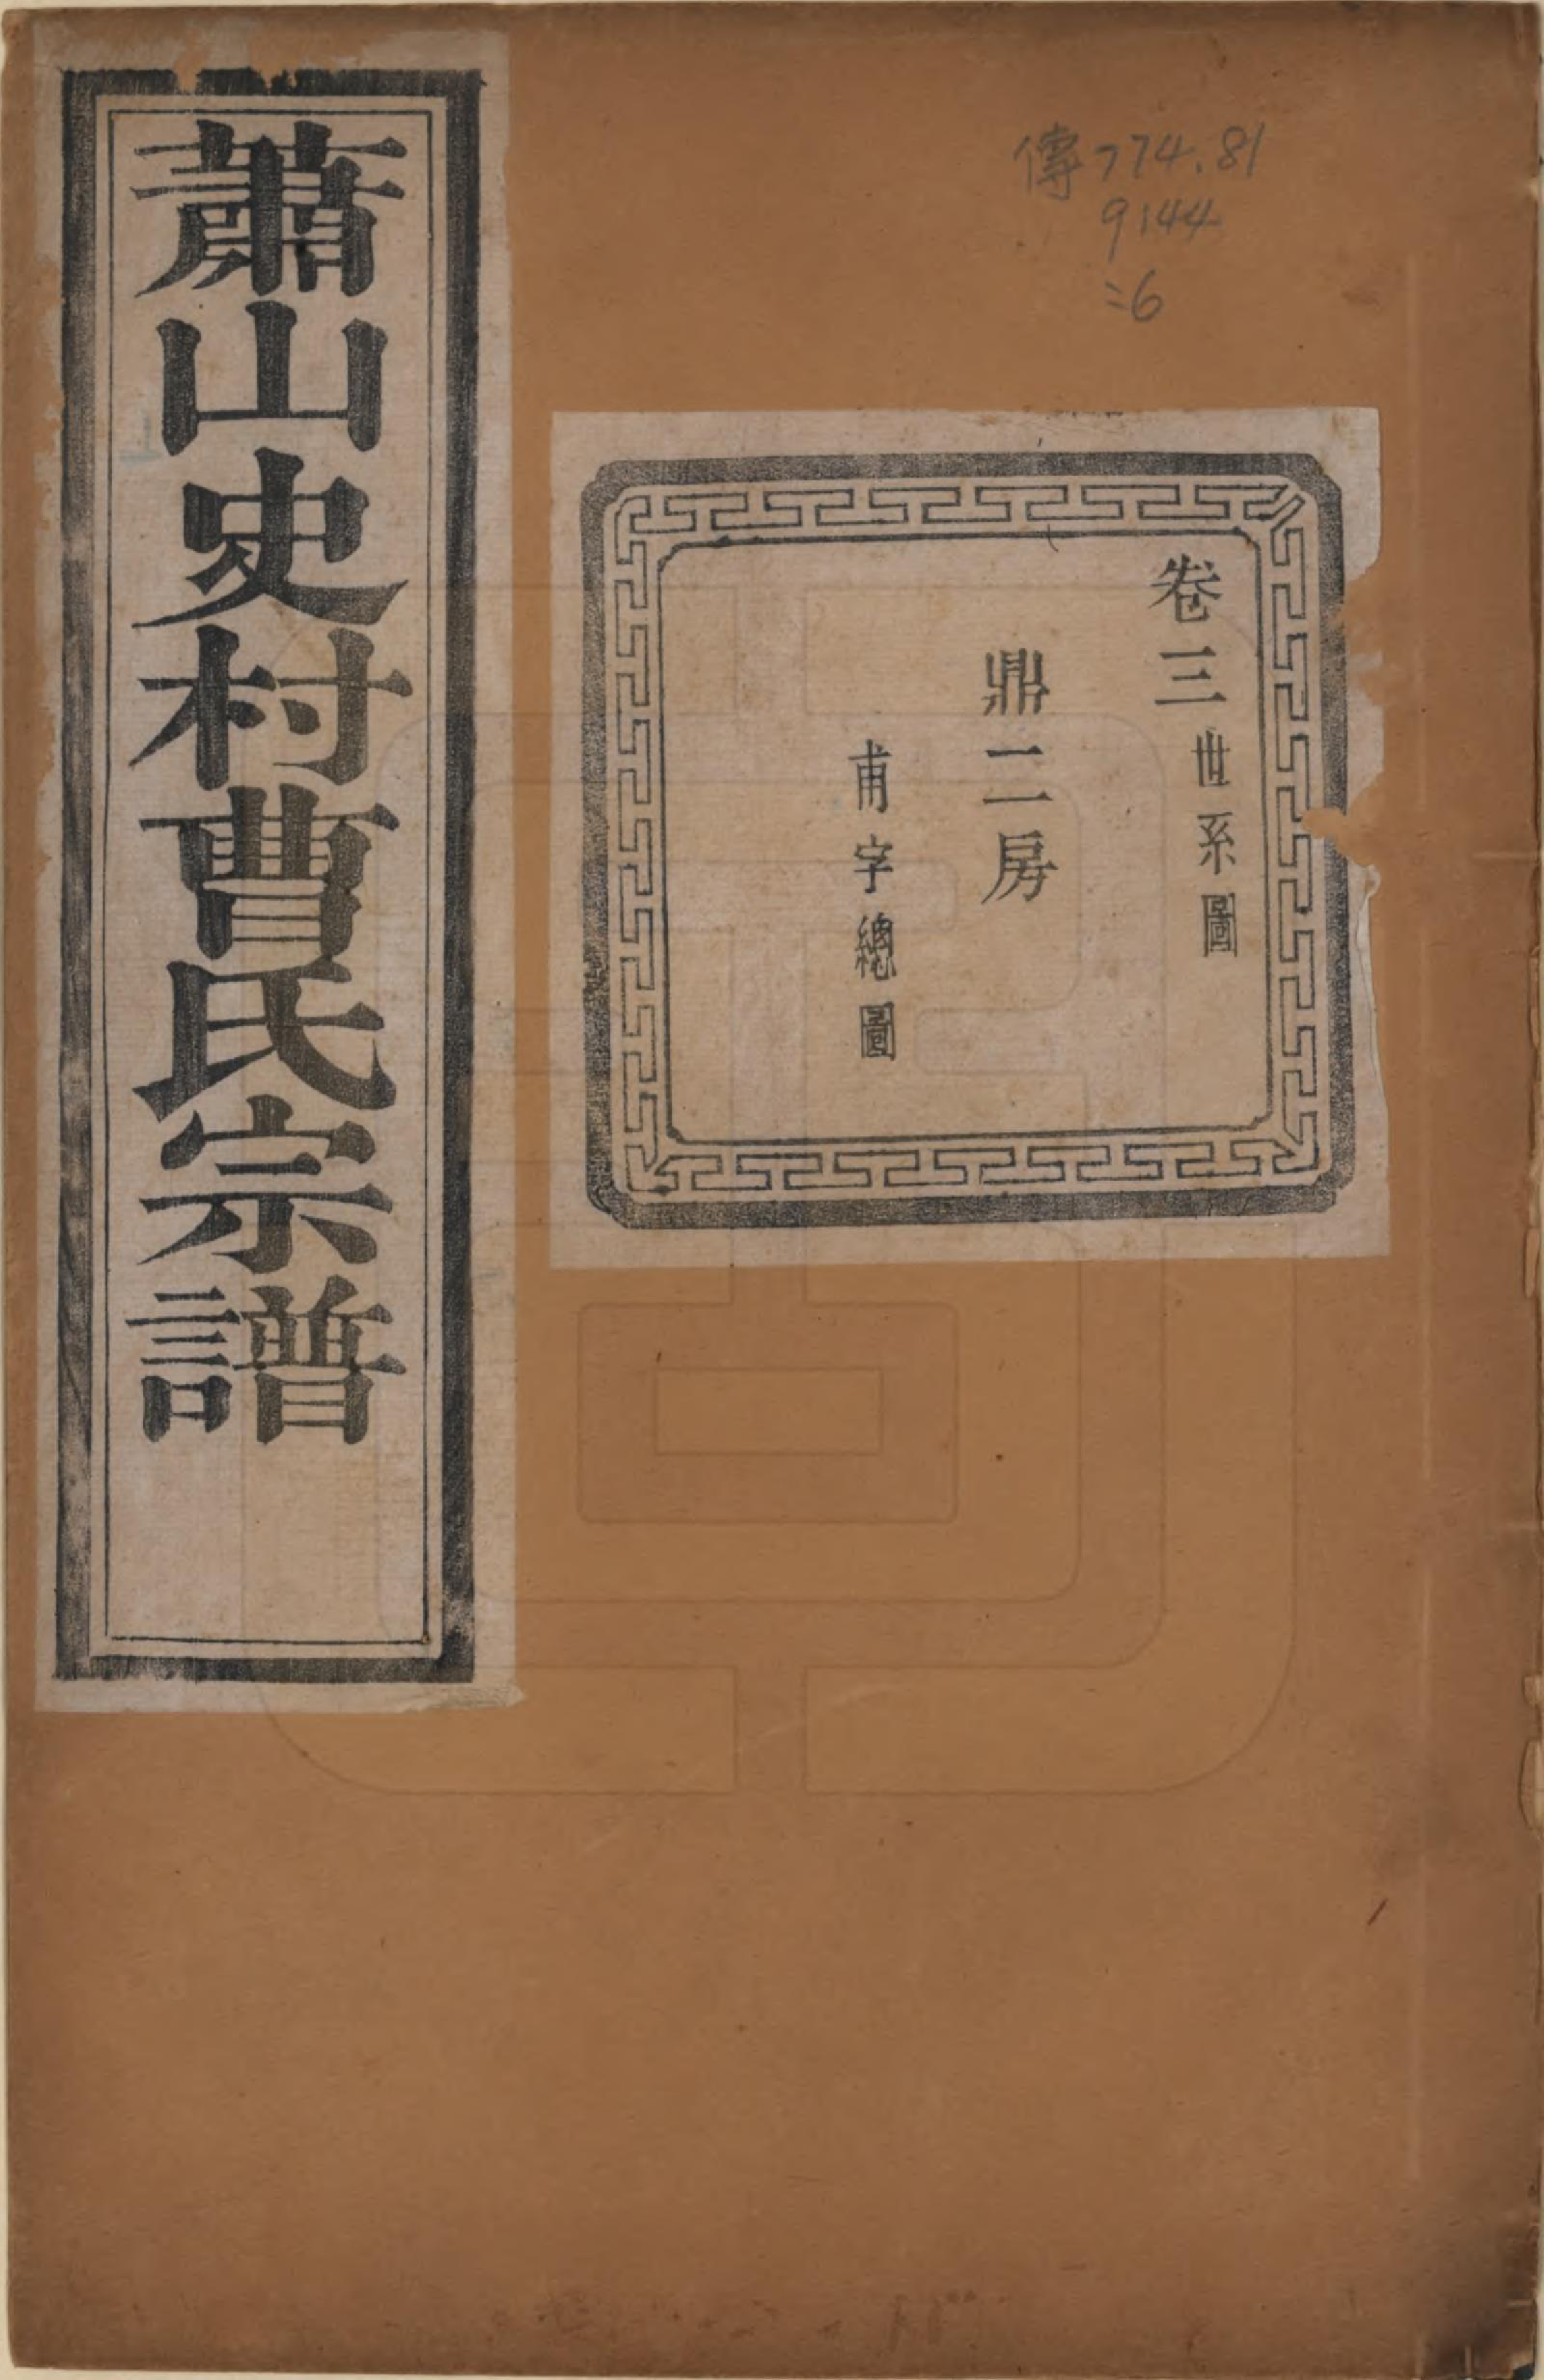 蕭山史村曹氏宗譜
傳774.81
9144
:6
卷三世系圖
鼎二房
甫字總圖